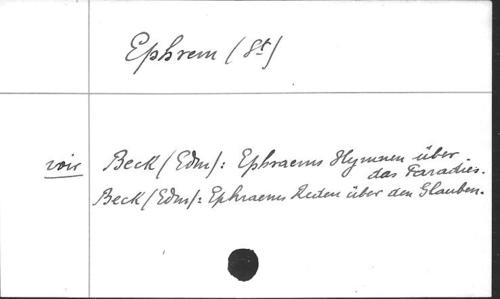 Ephrem (St)
voir Beck (Edm): Ephraems Hymnen über
das Paradies.
Beck (Edm): Ephraems Reden über den Glauben.